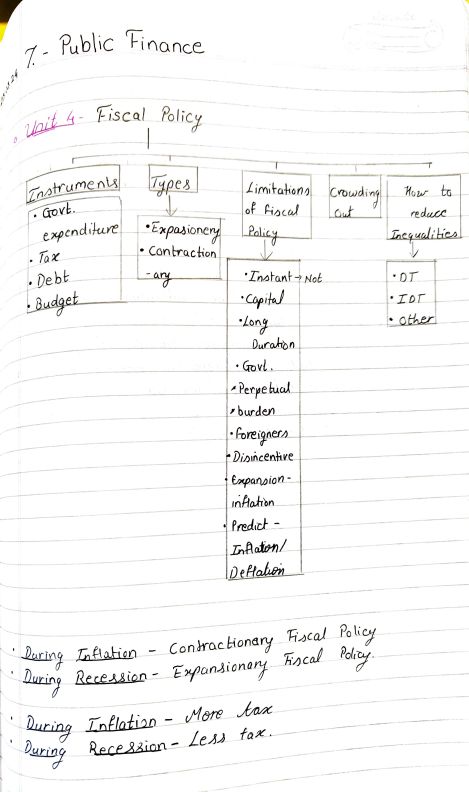 7. - Public Finance
Unit 4 - Fiscal Policy
Instruments
• Govt.
expenditure
• Tax
• Debt
• Budget
Types
• Expasionery
• Contraction
-ary
Limitations
of fiscal
Policy
• Instant → Not
• Capital
• Long
Duration
• Govt.
• Perpetual
• burden
• foreigners
• Disincentive
• Expansion -
inflation
• Predict -
Inflation/
Deflation
Crowding
Out
How to
reduce
Inequalities
• DT
• IDT
• Other
• During Inflation - Contractionary Fiscal Policy
• During Recession - Expansionary Fiscal Policy.
• During Inflation - More tax
• During Recession - Less tax.